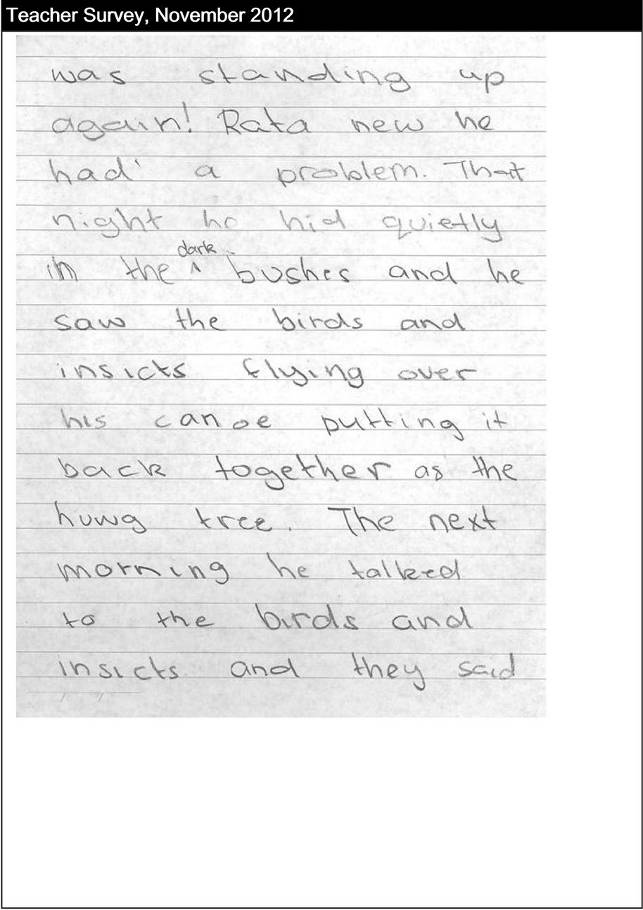 Teacher Survey, November 2012
was standing up
again! Rata new he
had' a problem. That
night he hid quietly
in the ^ dark bushes and he
saw the birds and
insicts flying over
his canoe putting it
back together as the
huwg tree. The next
morning he talked
to the birds and
insicts and they said